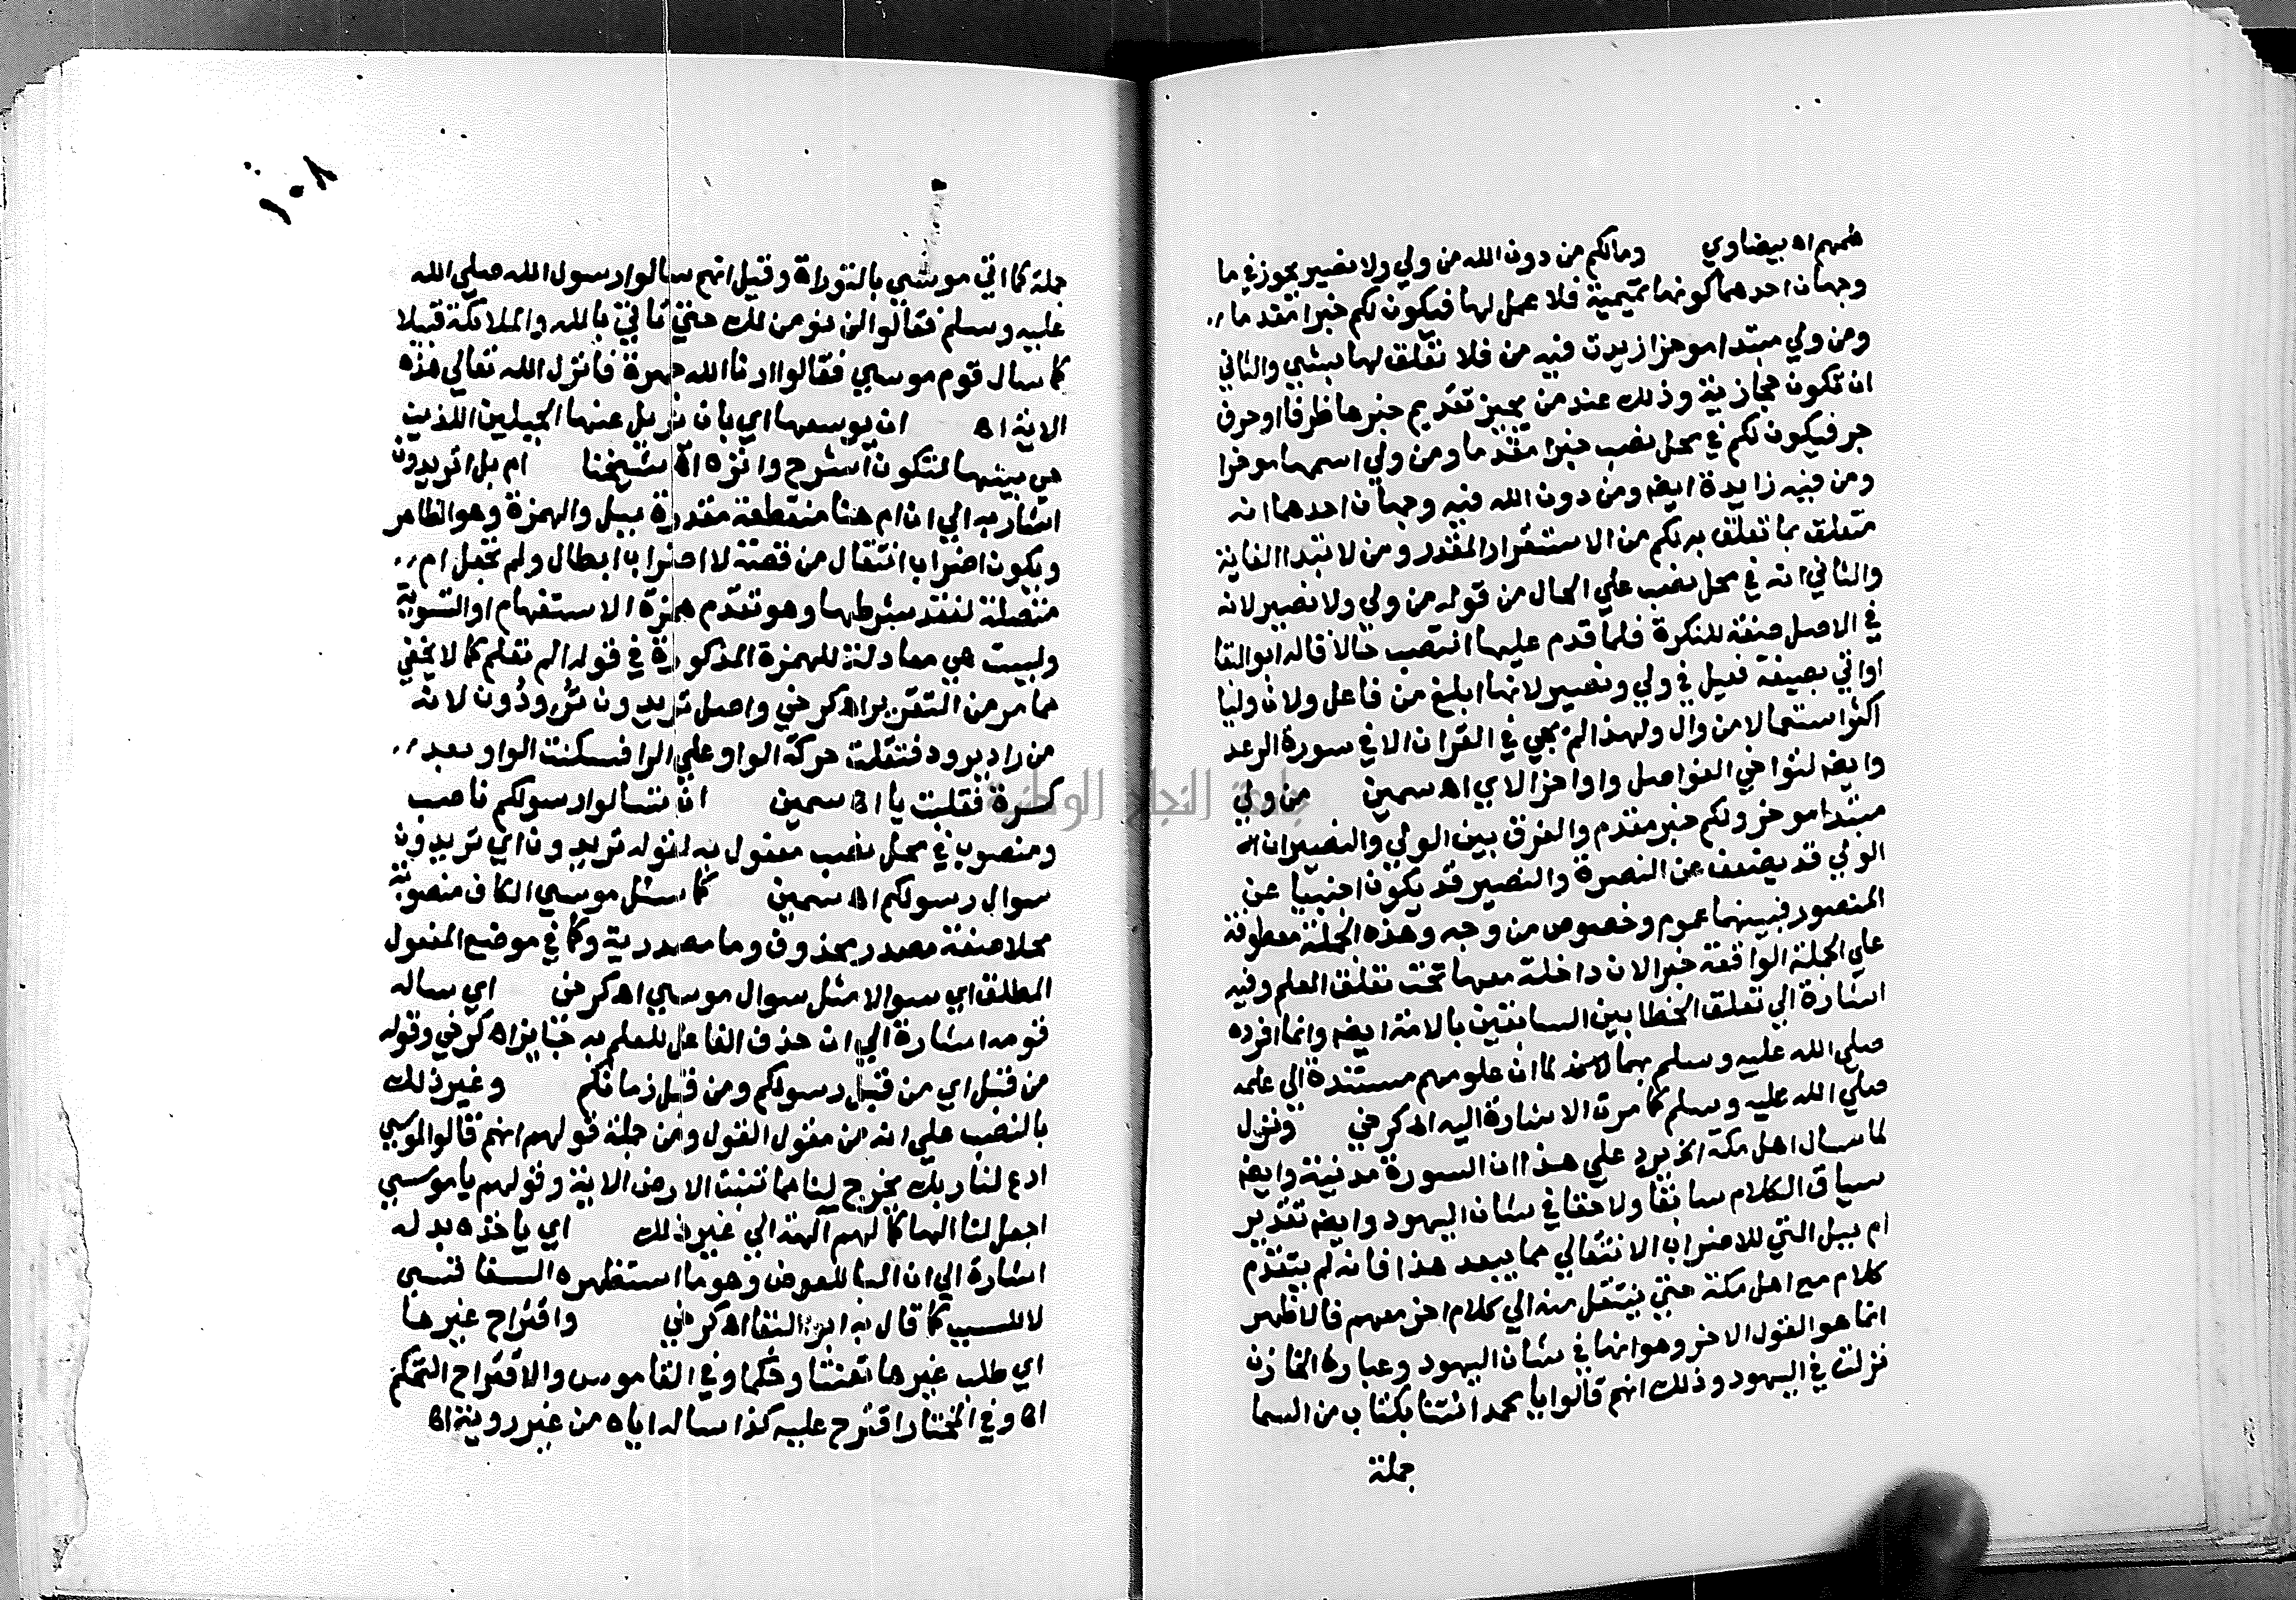 همهم اه بيضاوي ومالكم من دون الله من ولي ولا نصير يجوز في ما
وجهان احدهما كونها تميمية فلا عمل لها فيكون لكم خبرا مقدما
ومن ولي مبتدا موخرا زيدت فيه من فلا تعلق لها بشي والثاني
ان تكون حجازية وذلك عند من يجيز تقديم خبرها ظرفا او حرف
جر فيكون لكم في محل نصب خبرا مقدما ومن ولي اسمها موخرا
ومن فيه زايدة ايضا ومن دون الله فيه وجهان احدهما انه
متعلق بما تعلق به لكم من الاستقرار المقدر ومن لابتدا الغاية
والثاني انه في محل نصب علي الحال من قوله من ولي ولا نصير لانه
في الاصل صفة للنكرة فلما قدم عليها انتصب حالا قاله ابو البقا
واتي بصيغة فعيل في ولي ونصير لانها ابلغ من فاعل ولان وليا
اكثر استعمالا من وال ولهذا لم يجي في القران الا في سورة الرعد
وايضا لتواخي الفواصل واواخر الاي اه سمين من ولي
مبتدا موخر ولكم خبر مقدم والفرق بين الولي والنصير ان
الولي قد يضعف عن النصرة والنصير قد يكون اجنبيا عن
المنصور فبينهما عموم وخصوص من وجه وهذه الجملة معطوفة
علي الجملة الواقعة خبرا لان داخلة معها تحت تعلق العلم وفيه
اشارة الي تعلق الخطابين السابقين بالامة ايضا وانما افرده
صلي الله عليه وسلم بهما لما ان علومهم مستندة الي علمه
صلي الله عليه وسلم كما مرت الاشارة اليه اه كرخي ونزل
لما سال اهل مكة الخ يرد علي هذا ان السورة مدنية وايضا
سياق الكلام سابقا ولاحقا في شان اليهود وايضا تقدير
ام ببل التي للاضراب الانتقالي مما يبعد هذا فانه لم يتقدم
كلام مع اهل مكة حتي ينتقل منه الي كلام اخر معهم فالاظهر
انما هو القول الاخر وهو انها في شان اليهود وعبارة الخازن
نزلت في اليهود وذلك انهم قالوا يا محمد ائتنا بكتاب من السما
جملة
١٠٨
جملة كما اتي موسي بالتوراة وقيل انهم سالوا رسول الله صلي الله
عليه وسلم فقالوا لن نومن لك حتي تاتي بالله والملائكة قبيلا
كما سال قوم موسي فقالوا ارنا الله جهرة فانزل الله تعالي هذه
الاية اه ان يوسعها اي بان يزيل عنها الجبلين اللذين
هي بينهما لتكون اشرح وانزه اه شيخنا ام بل اتريدون
اشار به الي ان ام هنا منقطعة مقدرة ببل والهمزة وهو الظاهر
ويكون اضراب انتقال من قصة لا اضراب ابطال ولم تجعل ام
متصلة لفقد شرطها وهو تقدم همزة الاستفهام او التسوية
وليست هي معادلة للهمزة المذكورة في قوله الم تعلم كما لا يخفي
مما مر من التقرير اه كرخي واصل تريدون ترودون لانه
من راد يرود فنقلت حركة الواو علي الرا فسكنت الواو بعد
كسرة فقلبت يا اه سمين ان تسالوا رسولكم ناصب
ومنصوب في محل نصب مفعول به لقوله تريدون اي تريدون
سوال رسولكم اه سمين كما سئل موسي الكاف منصوبة
محلا صفة مصدر محذوف وما مصدرية وكما في موضع المفعول
المطلق اي سوالا مثل سوال موسي اه كرخي اي ساله
قومه اشارة الي ان حذف الفاعل للعلم به جايز اه كرخي وقوله
من قبل اي من قبل رسولكم ومن قبل زمانكم وغير ذلك
بالنصب علي انه من مقول القول ومن جملة قولهم انهم قالوا لموسي
ادع لنا ربك يخرج لنا مما تنبت الارض الاية وقولهم يا موسي
اجعل لنا الها كما لهم الهة الي غير ذلك اي ياخذه بدله
اشارة الي ان البا للعوض وهو ما استظهره السفاقسي
لا للسبب كما قال به ابو البقا اه كرخي واقتراح غيرها
اي طلب غيرها تعنتا وتحكما وفي القاموس والاقتراح التحكم
اه وفي المختار اقترح عليه كذا ساله اياه من غير روية اه
جامعة النجاح الوطنية